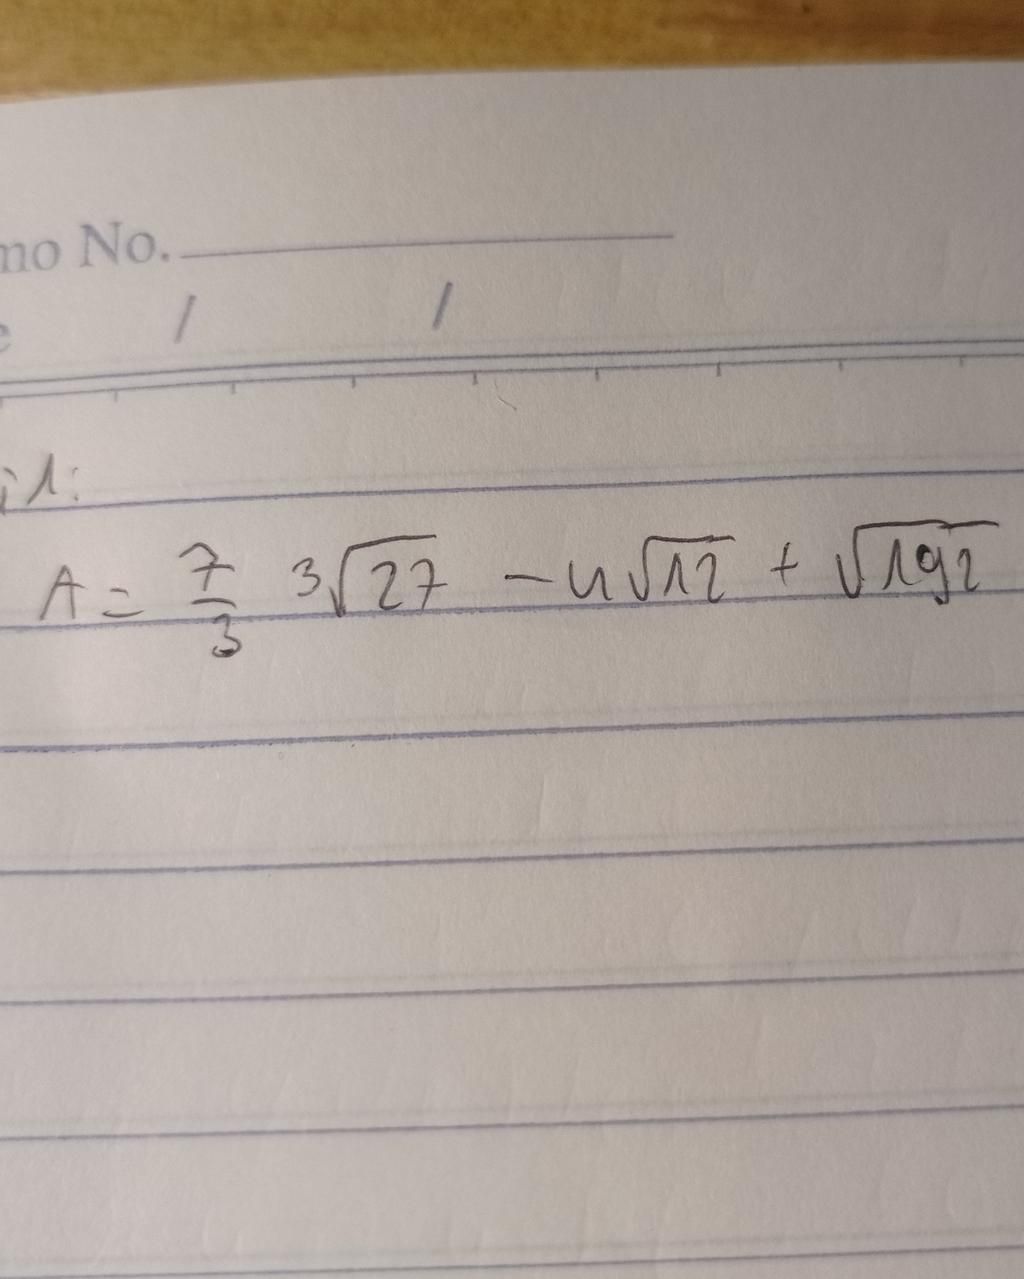 No.
/ /
1:
A = 7/3 3√27 - 4√12 + √192